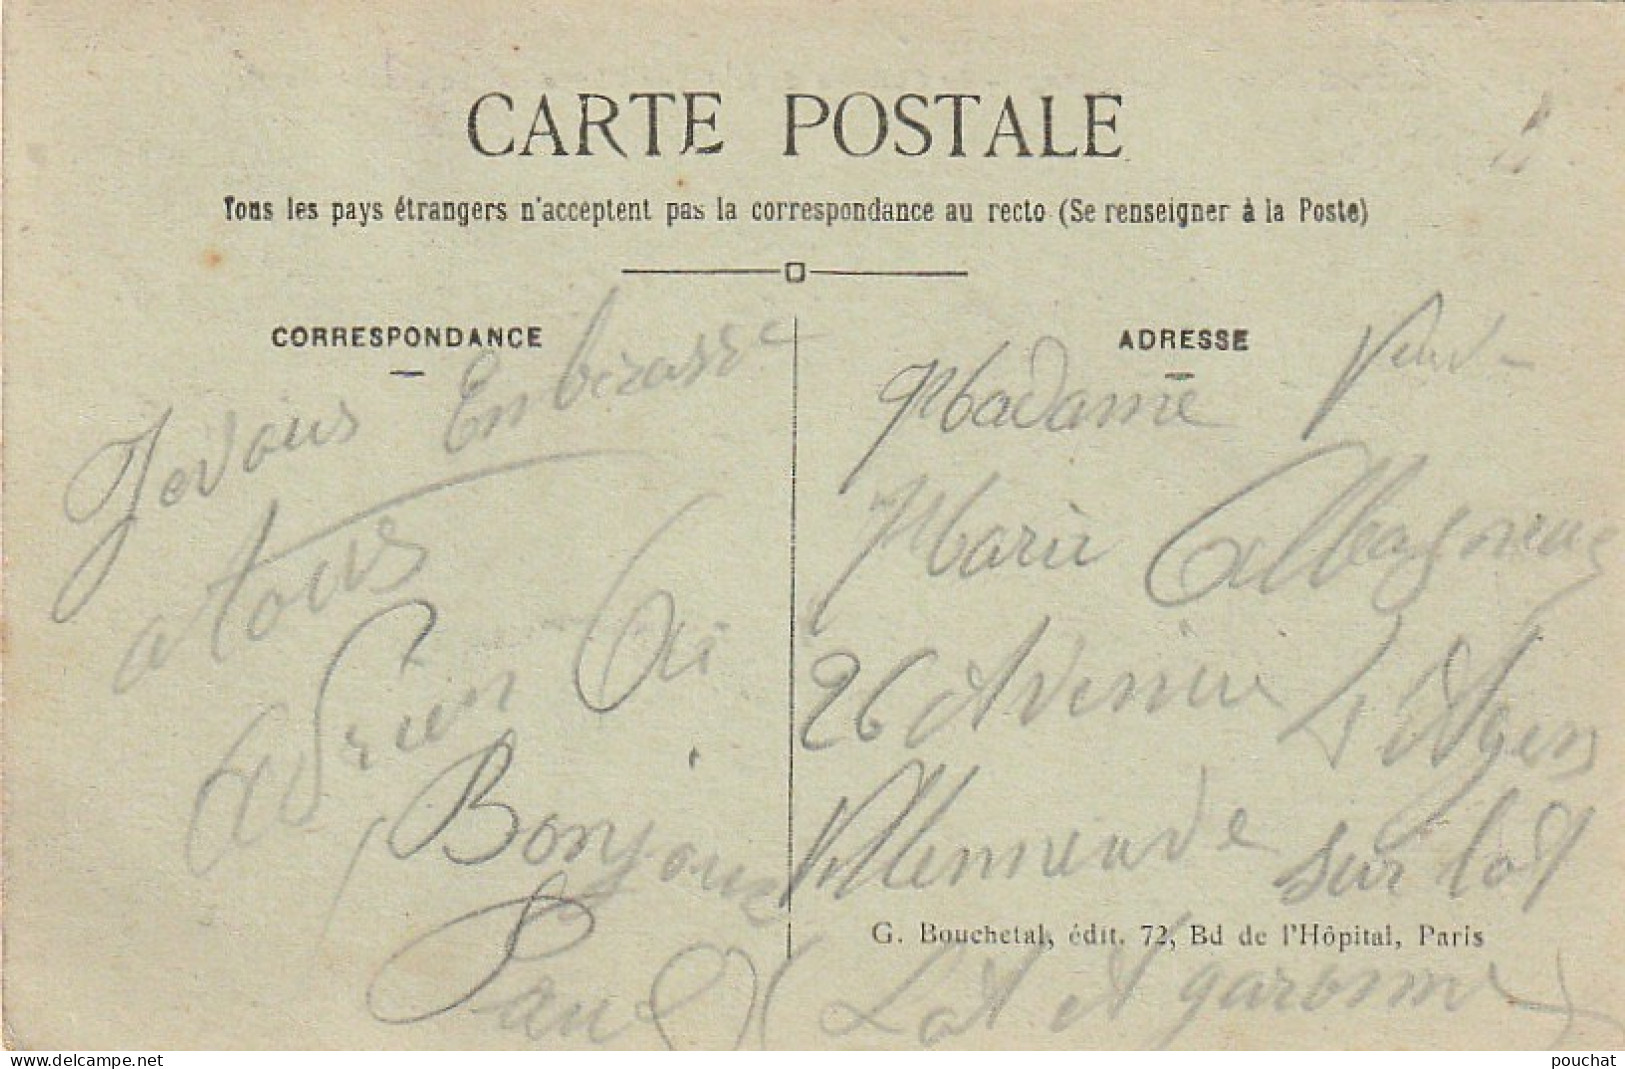 CARTE POSTALE
Tous les pays étrangers n'acceptent pas la correspondance au recto (Se renseigner à la Poste)
CORRESPONDANCE
Je vous Embrasse
a tous
Adrien
Bonjour
Paul
ADRESSE
Madame Veuve
Marie
26 Avenue d'Agen
Villeneuve sur lot
(Lot et garonne)
G. Bouchetal, édit. 72, Bd de l'Hôpital, Paris
www.delcampe.net
pouchat